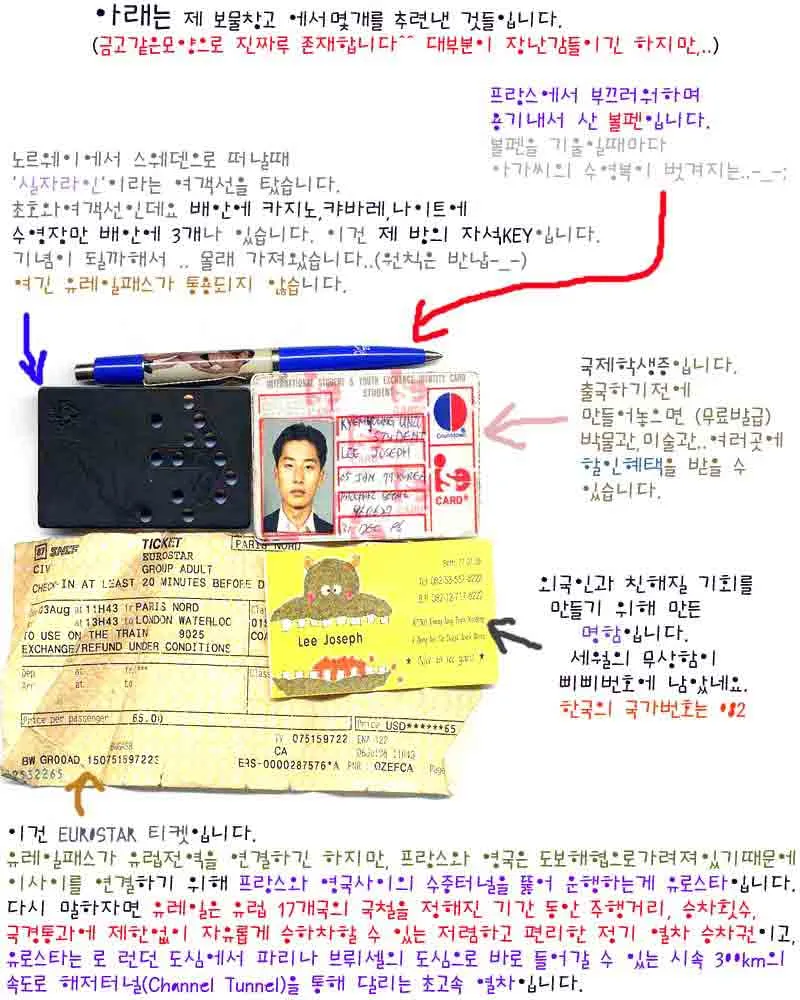 아래는 제 보물창고 에서몇개를 추련낸 것들입니다.
(금고같은모양으로 진짜루 존재합니다^^ 대부분이 장난감들이긴 하지만,..)
프랑스에서 부끄러워하며
용기내서 산 볼펜입니다.
볼펜을 기울일때마다
아가씨의 수영복이 벗겨지는..-_-;
노르웨이에서 스웨덴으로 떠날때
'실자라인'이라는 여객선을 탔습니다.
초호와여객선인데요 배산에 카지노,캬바레,나이트에
수영장만 배산에 3개나 있습니다. 이건 제 방의 자석KEY입니다.
기념이 될까해서 .. 몰래 가져왔습니다..(원칙은 반납-_-)
여긴 유레일패스가 통용되지 않습니다.
국제학생증입니다.
출국하기전에
만들어놓으면 (무료발급)
박물관,미술관..여러곳에
할인혜택을 받을 수
있습니다.
INTERNATIONAL STUDENT & YOUTH EXCHANGE IDENTITY CARD
STUDENT
STUDENT
LEE JOSEPH
COUNTDOWN
CARD
SNCF
TICKET
PARIS NORD
EUROSTAR
CIV
GROUP ADULT
CHECK-IN AT LEAST 20 MINUTES BEFORE D
03Aug at 11H43 fr PARIS NORD
at 13H43 to LONDON WATERLOO
TO USE ON THE TRAIN 9025
EXCHANGE/REFUND UNDER CONDITIONS
Dep at
Arr at to
Class
Price per passenger 65.00
Price USD******65
IV 075159722
CA
BW GROOAD 150751597223
ERS-0000287576*A PNR :QZEFCA Page
Lee Joseph
외국인과 친해질 기회를
만들기 위해 만든
명함입니다.
세월의 무상함이
삐삐번호에 남았네요.
한국의 국가번호는 082
이건 EUROSTAR 티켓입니다.
유레일패스가 유럽전역을 연결하긴 하지만, 프랑스와 영국은 도보해협으로가려져있기때문에
이사이를 연결하기 위해 프랑스와 영국사이의 수중터널을 뚫어 운행하는게 유로스타입니다.
다시 말하자면 유레일은 유럽 17개국의 국철을 정해진 기간 동안 주행거리, 승차횟수,
국경통과에 제한없이 자유롭게 승하차할 수 있는 저렴하고 편리한 정기 열차 승차권이고,
유로스타는 로 런던 도심에서 파리나 브뤼셀의 도심으로 바로 들어갈 수 있는 시속 300km의
속도로 해저터널(Channel Tunnel)을 통해 달리는 초고속 열차입니다.